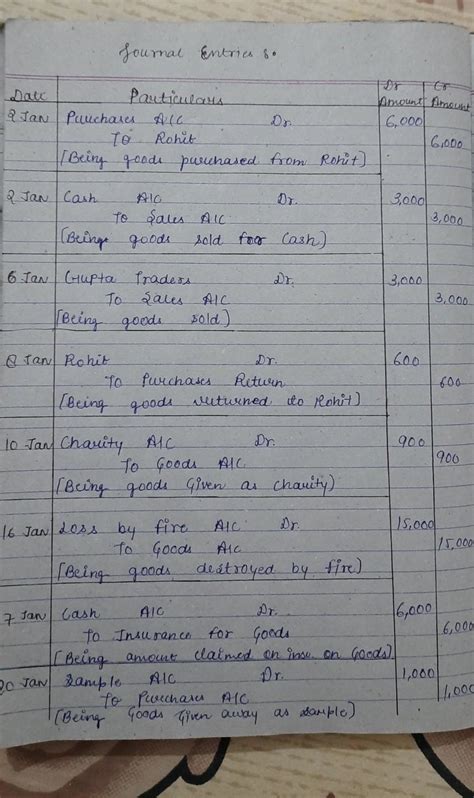 Journal Entries :
Date Particulars Dr Amount Cr Amount
2 Jan Purchases A/C Dr. 6,000
To Rohit 6,000
[Being goods purchased from Rohit]
2 Jan Cash A/C Dr. 3,000
To Sales A/C 3,000
(Being goods sold for Cash)
6 Jan Gupta Traders Dr. 3,000
To Sales A/C 3,000
[Being goods sold)
8 Jan Rohit Dr. 600
To Purchases Return 600
[Being goods returned to Rohit)
10 Jan Charity A/C Dr. 900
To Goods A/C 900
[Being goods Given as charity)
16 Jan Loss by fire A/C Dr. 15,000
To Goods A/C 15,000
[Being goods destroyed by fire]
7 Jan Cash A/C Dr. 6,000
To Insurance for Goods 6,000
[Being amount claimed on insu. on Goods]
20 Jan Sample A/C Dr. 1,000
To Purchases A/C 1,000
(Being Goods Given away as sample)